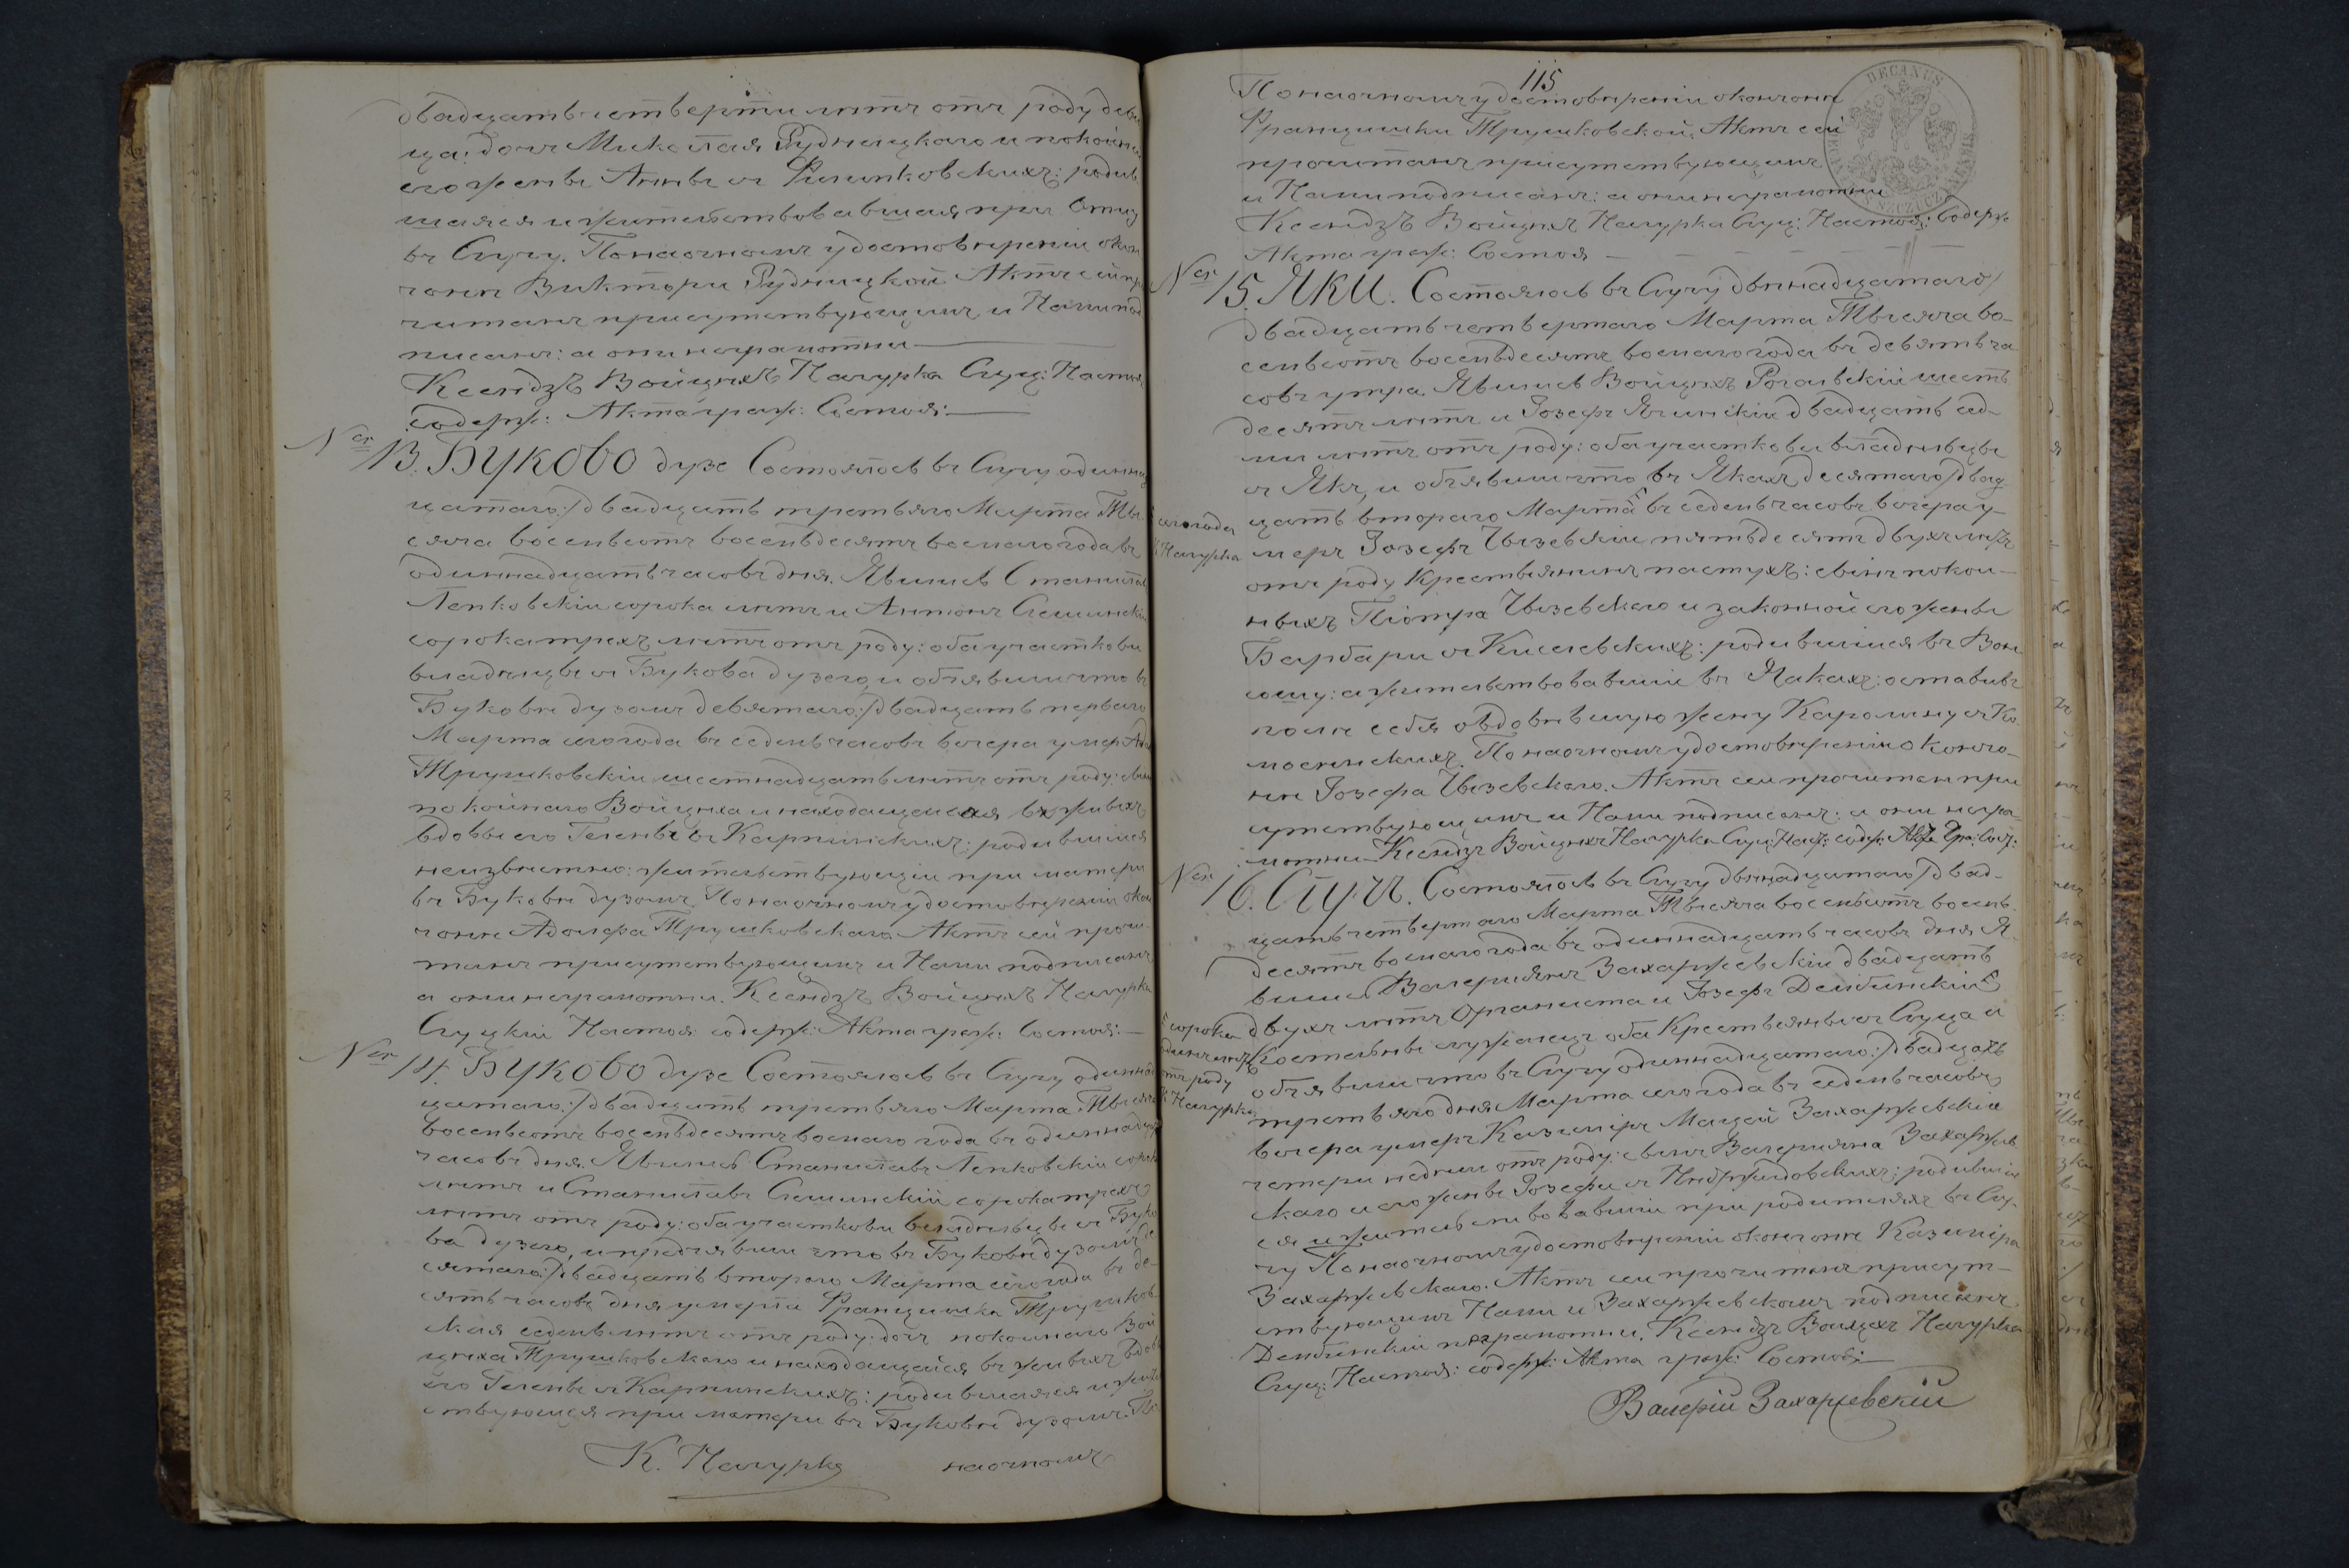 двадцать четверти лѣтъ отъ роду деви
ца: дочь Миколая Рудницкаго и покойн
его жены Анны съ Филипковскихъ: родив
шаяся и жительствовавшая при Отцу
въ Случу. По наочномъ удостовѣреніи окон
чаніи Виктори Рудницкой Актъ сей про
читанъ присутствующимъ и Нами под
писанъ: а они неграмотни
Ксендзъ Войцѣхъ Нагурка Слуц: Настоя
содерж: Акта граж: Состоя:
Ner 13. Буково дузе Состоялось въ Случу одиннад
цатаго/двадцать третьяго Марта Ты
сяча восемьсотъ восемьдесятъ восмаго года въ
одиннадцать часовъ дня. Явились Станислав
Лепковскіи сорока лѣтъ и Антонъ Слешинскіи
сорокатрехъ лѣтъ отъ роду: оба участкови
владѣлцы съ Букова дузего, и объявили что въ
Буковѣ дузомъ девятаго/двадцать перваго
Марта сего года въ седемь часовъ вечера умер Адо
Трушковскіи шестнадцать лѣтъ отъ роду: сынъ
покойнаго Войцѣха и находащейся въ живыхъ
вдовы его Гелены съ Карпинскихъ: родившійся
неизвѣстно: жительствующій при матери
въ Буковѣ дузомъ. По наочномъ удостовѣреніи окон
чаніи Адольфа Трушковскаго. Актъ сей прочи
танъ присутствующимъ и Нами подписанъ
а они неграмотни. Ксендзъ Войцѣхъ Нагурка
Слуцкіи Настоя: содерж: Акта граж: Состоя:
Ner 14. Буково дузе Состоялось въ Случу одиннад
цатаго/двадцать третьяго Марта Тысяча
восемьсотъ восемьдесятъ восмаго года въ одиннадцат
часовъ дня. Явились Станиславъ Лепковскіи сорок
лѣтъ и Станиславъ Слешинскіи сорокатрехъ
лѣтъ отъ роду: оба участкови владѣльцы съ Буко
ва дузего, и предъявили что въ Буковѣ дузомъ де
сятаго/двадцать втораго Марта сего года въ де
сять часовъ дня умерла Францишка Трушков
ская седемь лѣтъ отъ роду: дочъ покойнаго Вой
цѣха Трушковскаго и находащейся въ живыхъ вдовы
его Гелены съ Карпинскихъ: родившаяся и жител
ствующая при матери въ Буковѣ дузомъ. По
К. Нагурка наочномъ
115
По наочномъ удостовѣреніи окончанія
Францишки Трушковской. Актъ сей
прочитанъ присутствующимъ
и Нами подписанъ: а они неграмотни
Ксендзъ Войцѣхъ Нагурка Слуц: Настоя: содерж:
Акта граж: Состоя
DECANUS
Ner 15. ЯКИ. Состоялось въ Случу двѣнадцатаго/
двадцать четвертаго Марта Тысяча во-
семьсотъ восемьдесятъ восмаго года въ девять ча
совъ утра. Явились Войцѣхъ Рогальскіи шесть
десятъ лѣтъ и Іозефъ Ягинскіи двадцать сед-
ми лѣтъ отъ роду: оба участкови владѣльцы
съ Якъ, и объявили что въ Якахъ десятаго/двад
цать втораго Марта въ седемь часовъ вечера у-
сего года
К. Нагурка
меръ Іозефъ Чызевскіи пятьдесятъ двухъ лѣтъ
отъ роду Крестьянинъ пастухъ: сынъ покой-
ныхъ Піотра Чызевскаго и законной его жены
Барбари съ Киселевскихъ: родившійся въ Вон
сошу: а жительствовавшіи въ Якахъ: оставивъ
после себя овдовѣвшую жену Каролину съ Ко
мосинскихъ. По наочномъ удостовѣреніи оконча-
ніи Іозефа Чызевскаго. Актъ сей прочитанъ при
сутствующимъ и Нами подписанъ: а они негра-
мотни Ксендзъ Войцѣхъ Нагурка Слуц: Наст: содер: Акта Гра: Сост:
Nen 16. Случъ. Состоялось въ Случу двѣнадцатаго/двад-
цать четвертаго Марта Тысяча восемьсотъ восемь
десятъ восмаго года въ одиннадцать часовъ дня. Я-
вились Валеріянъ Захаржевскіи двадцать
двухъ лѣтъ Органиста и Іозефъ Дембинскіи
сорока
одинъ лѣтъ
отъ роду
К. Нагурка
Костельны служалецъ оба Крестьяны съ Слуца и
объявили что въ Случу одиннадцатаго/двадцать
третьяго дня Марта сего года въ седемь часовъ
вечера умеръ Казиміръ Мацей Захаржевскіи
четери недѣли отъ роду: сынъ Валеріяна Захаржев
скаго и его жены Іозефи съ Недржвидовскихъ: родившій
ся и жительствовавшіи при родителяхъ въ Слу
чу По наочномъ удостовѣреніи окончаніи Казиміра
Захаржевскаго. Актъ сеи прочитанъ присут-
ствующимъ Нами и Захаржевскимъ подписанъ
Дембинскіи неграмотни. Ксендзъ Войцѣхъ Нагурка
Слуц: Настоя: содерж: Акта граж: Состоя:
Валерій Захаржевскій